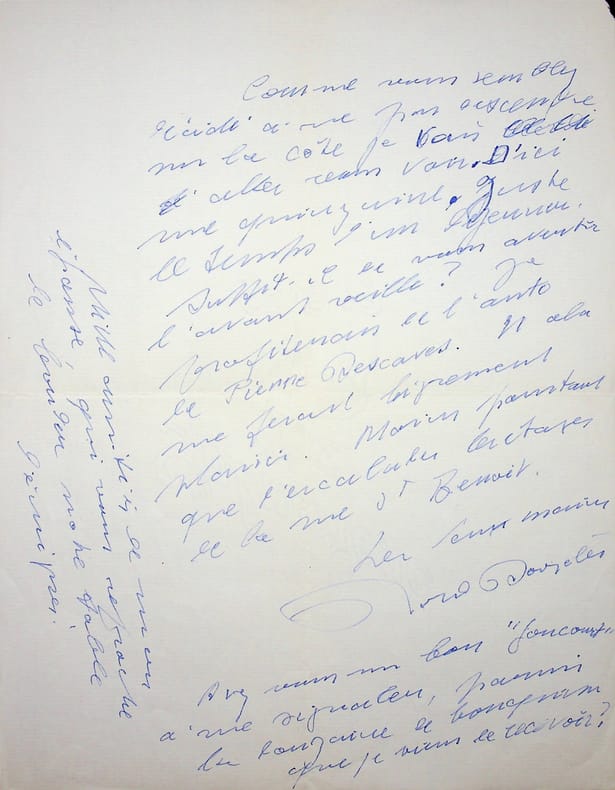 Comme vous semblez
décidé à ne pas descendre
sur la côte je vais
d'aller vous voir. D'ici
une quinzaine. Juste
le temps d'un déjeuner.
Suffit-il de vous avertir
l'avant veille? Je
profiterais de l'auto
de Pierre Descaves. Et cela
me ferait bigrement
plaisir. Moins pourtant
que d'escalader les étages
de la rue St Benoit.
Les deux mains
Roland Dorgelès
Avez vous un bon "Goncourt"
à me signaler, parmi
la douzaine de bouquins
que je viens de recevoir?
Mille amitiés de mon
épouse, qui vous reproche
de bouder notre